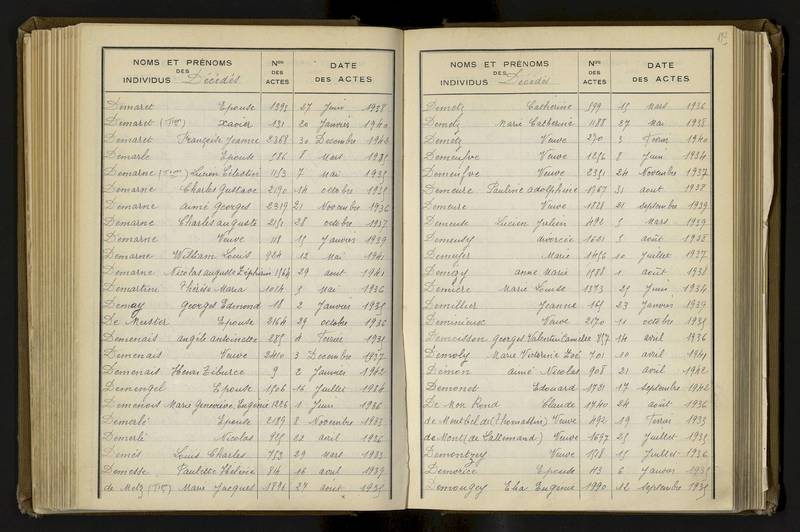 NOMS ET PRÉNOMS DES INDIVIDUS Décédés Nos DES ACTES DATE DES ACTES
Demaret Epouse 1395 27 Juin 1938
Demaret (Tion) Xavier 131 20 Janvier 1940
Demaret Françoise Jeanne 2368 30 Decembre 1942
Demarle Epouse 586 8 mars 1935
Demarne (Tion) Lucien Célestin 1153 7 mai 1935
Demarne Charles Gustave 2190 14 octobre 1935
Demarne aimé georges 2319 21 Novembre 1936
Demarne Charles auguste 2151 28 octobre 1937
Demarne Veuve 118 15 Janvier 1939
Demarne William Louis 924 12 Mai 1941
Demarne Nicolas auguste 1564 29 aout 1941
Demartini Thérèse Maria 1014 5 mai 1936
Demay georges Edmond 18 2 Janvier 1935
De Meester Epouse 2164 29 octobre 1936
Demenais angèle antoinette 285 4 Fevrier 1935
Demenais Veuve 2410 3 Decembre 1937
Demenais Henri Tiburce 9 2 Janvier 1942
Demengel Epouse 1506 16 Juillet 1934
Demenois Marie Geneviève Eugénie 1226 1 Juin 1936
Demerlé Epouse 2189 8 Novembre 1933
Demerlé Nicolas 925 22 avril 1936
Demés Louis Charles 753 29 mars 1933
Demesse Paulette Hélène 84 16 avril 1939
de Metz (Tion) Marie Jacques 1836 27 août 1935
187
NOMS ET PRÉNOMS DES INDIVIDUS Décédés Nos DES ACTES DATE DES ACTES
Demetz Catherine 599 15 Mars 1936
Demetz Marie Catherine 1188 27 mai 1938
Demetz Veuve 270 3 Fevrier 1940
Demeufve Veuve 1256 8 Juin 1934
Demeufve Veuve 2351 24 Novembre 1937
Demeure Pauline adolphine 1867 31 aout 1938
Demeure Veuve 1828 21 septembre 1939
Demeuse Lucien Julien 492 5 Mars 1939
Demeusy divorcée 1601 5 août 1938
Demeyer Marie 1456 10 Juillet 1937
Demezy anne Marie 1588 1 août 1938
Demière Marie Louise 1373 25 Juin 1934
Demillier Jeanne 165 23 Janvier 1939
Demimieux Veuve 2170 11 octobre 1935
Demoisson georges Valentin Camille 857 14 avril 1936
Demoly Marie Victorine Zoé 701 10 avril 1941
Démon aimé Nicolas 908 21 avril 1942
Demonet Edouard 1781 17 septembre 1942
De Mon Rond Claude 1740 24 août 1936
de Montbel de (Thomassin) Veuve 492 19 Fevrier 1935
de Mont (de Lallemand) Veuve 1697 25 Juillet 1935
Demontzey Veuve 1518 15 Juillet 1936
Demorice Epouse 43 6 Janvier 1935
Demougey Elia Eugène 1990 12 septembre 1935